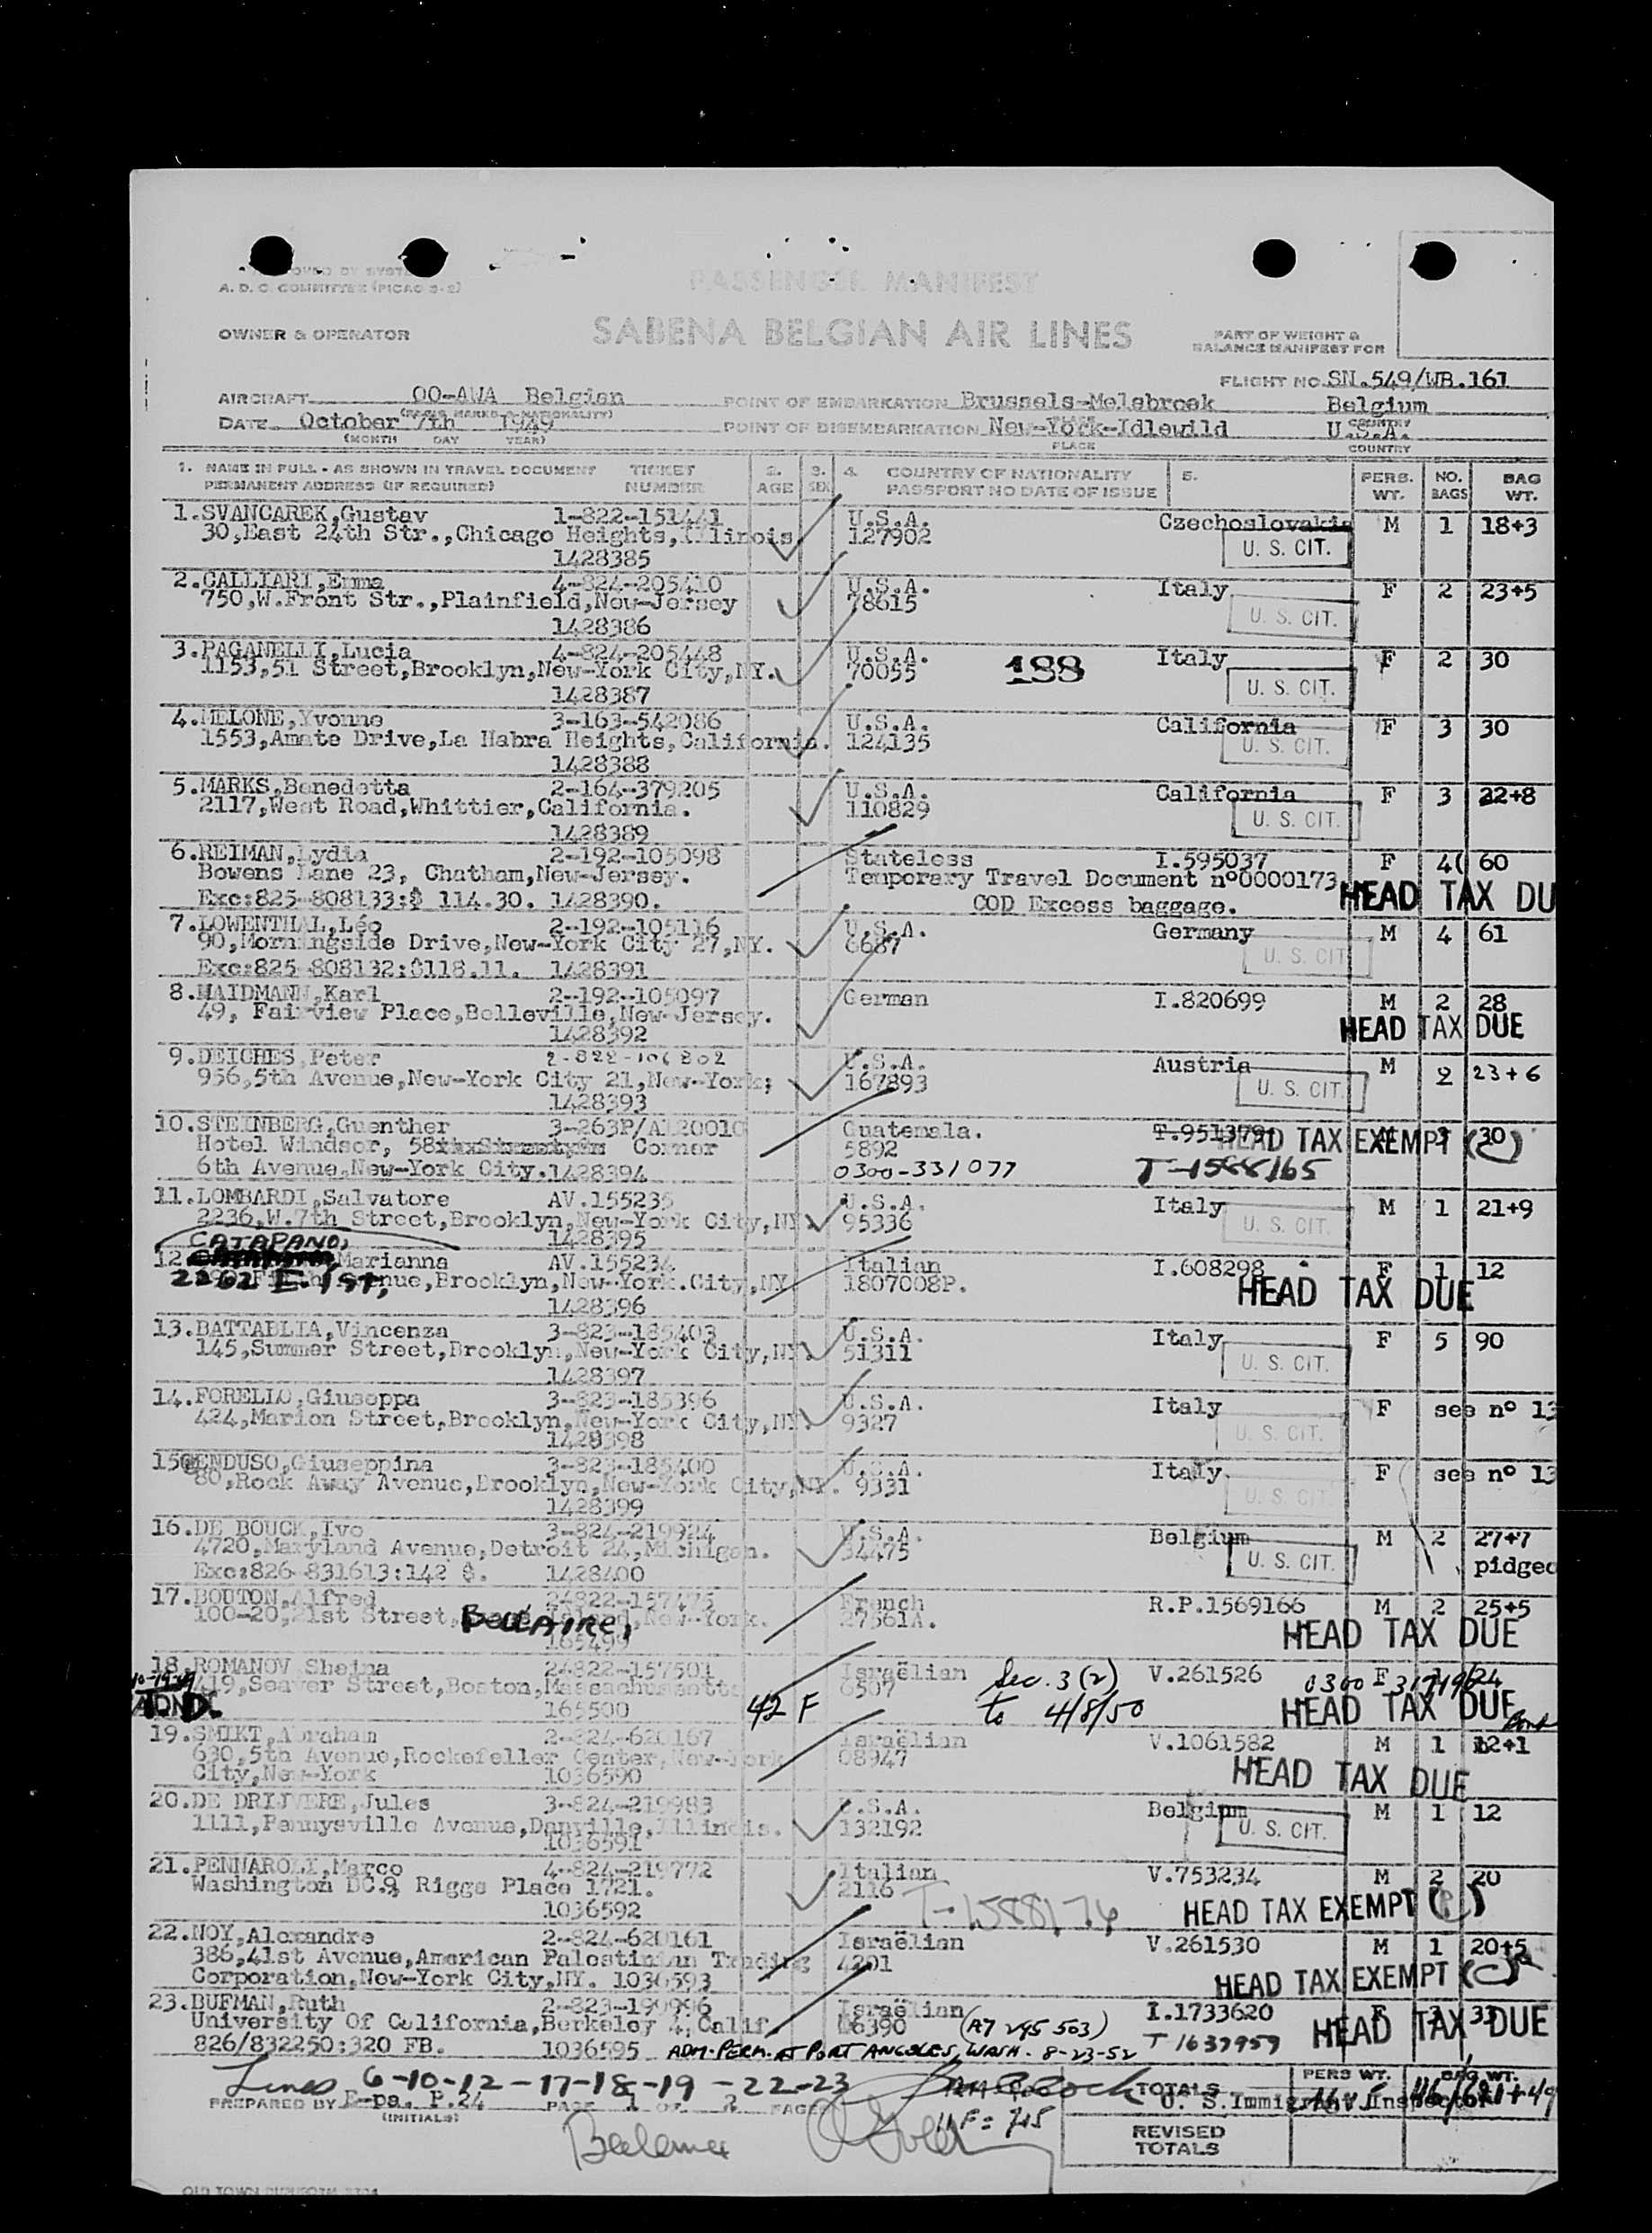 A. D. C. COMMITTEE (PICAO 2-2)
PASSENGER MANIFEST
OWNER & OPERATOR
SABENA BELGIAN AIR LINES
PART OF WEIGHT &
BALANCE MANIFEST FOR
FLIGHT NO. SN.549/WB.161
AIRCRAFT OO-AWA Belgian POINT OF EMBARKATION Brussels-Melsbroek Belgium
DATE October 7th 1949 POINT OF DISEMBARKATION New-York-Idlewild U.S.A.
(MONTH DAY YEAR) PLACE COUNTRY
1. NAME IN FULL - AS SHOWN IN TRAVEL DOCUMENT TICKET 2. 3. 4. COUNTRY OF NATIONALITY 5. PERS. NO. BAG
PERMANENT ADDRESS (IF REQUIRED) NUMBER AGE SEX PASSPORT NO DATE OF ISSUE WT. BAGS WT.
1.SVANCAREK,Gustav 1-822-151441 U.S.A. Czechoslovakia M 1 18+3
30,East 24th Str.,Chicago Heights,Illinois 127902 U. S. CIT.
1428385
2.CALLIARI,Emma 4-824-205410 U.S.A. Italy F 2 23+5
750,W.Front Str.,Plainfield,New-Jersey 78615 U. S. CIT.
1428386
3.PAGANELLI,Lucia 4-824-205448 U.S.A. Italy F 2 30
1153,51 Street,Brooklyn,New-York City,NY. 70055 188 U. S. CIT.
1428387
4.MELONE,Yvonne 3-163-542086 U.S.A. California F 3 30
1553,Amate Drive,La Habra Heights,California. 124135 U. S. CIT.
1428388
5.MARKS,Benedetta 2-164-379205 U.S.A. California F 3 22+8
2117,West Road,Whittier,California. 110829 U. S. CIT.
1428389
6.REIMAN,Lydia 2-192-105098 Stateless I.595037 F 4( 60
Bowens Lane 23, Chatham,New-Jersey. Temporary Travel Document nº0000173
Exc:825-808133:$ 114.30. 1428390. COD Excess baggage. HEAD TAX DU
7.LOWENTHAL,Léo 2-192-105116 U.S.A. Germany M 4 61
90,Morningside Drive,New-York City 27,NY. 6687 U. S. CIT
Exc:825-808132:$118.11. 1428391
8.MAIDMANN,Karl 2-192-105097 German I.820699 M 2 28
49, Fairview Place,Belleville,New-Jersey. HEAD TAX DUE
1428392
9.DEICHES,Peter 2-822-106802 U.S.A. Austria M 2 23+6
956,5th Avenue,New-York City 21,New-York; 167893 U. S. CIT.
1428393
10.STEINBERG,Guenther 3-263P/A120010 Guatemala. T.951379 30
Hotel Windsor, 58 Corner 5892 HEAD TAX EXEMPT (C)
6th Avenue,New-York City.1428394 0300-331077 T-1588165
11.LOMBARDI,Salvatore AV.155235 U.S.A. Italy M 1 21+9
2236,W.7th Street,Brooklyn,New-York City,NY 95336 U. S. CIT.
1428395
CATAPANO,
12. Marianna AV.155234 Italian I.608298 F 1 12
2262 E. 1st, Avenue,Brooklyn,New-York.City,NY 1807008P. HEAD TAX DUE
1428396
13.BATTABLIA,Vincenza 3-823-185403 U.S.A. Italy F 5 90
145,Summer Street,Brooklyn,New-York City,NY. 51311 U. S. CIT.
1428397
14.FORELLO,Giuseppa 3-823-185396 U.S.A. Italy F see nº 13
424,Marion Street,Brooklyn,New-York City,NY. 9327 U. S. CIT.
1428398
15.GENDUSO,Giuseppina 3-823-185400 U.S.A. Italy F see nº 13
80,Rock Away Avenue,Brooklyn,New-York City,NY. 9331 U. S. CIT
1428399
16.DE BOUCK,Ivo 3-824-219924 U.S.A. Belgium M 2 27+7
4720,Maryland Avenue,Detroit 24,Michigan. 34475 U. S. CIT. pidgeo
Exc:826-831613:142 $. 1428400
17.BOUTON,Alfred 24822-157475 French R.P.1569166 M 2 25+5
100-20,21st Street, BELLAIRE, New-York. 27561A. HEAD TAX DUE
165499
18.ROMANOV Sheina 24822-157501 Israëlian Sec. 3(2) V.261526 F 24
419,Seaver Street,Boston,Massachussetts 6507 to 4/8/50 HEAD TAX DUE
165500 42 F
19.SMIKT,Abraham 2-824-620167 Israëlian V.1061582 M 1 12+1
630,5th Avenue,Rockefeller Center,New-York 08947 HEAD TAX DUE
City,New-York 1036590
20.DE DRIJVERE,Jules 3-824-219983 U.S.A. Belgium M 1 12
1111,Pennysville Avenue,Danville,Illinois. 132192 U. S. CIT.
1036591
21.PENNAROLI,Marco 4-824-219772 Italian V.753234 M 2 20
Washington DC.9, Riggs Place 1721. 2116 T-1588176 HEAD TAX EXEMPT (C)
1036592
22.NOY,Alexandre 2-824-620161 Israëlian V.261530 M 1 20+5
386,41st Avenue,American Palestinian Trading 4201 HEAD TAX EXEMPT (C)
Corporation,New-York City,NY. 1036593
23.BUFMAN,Ruth 2-823-190996 Israëlian I.1733620 F 33
University Of California,Berkeley 4,Calif. 06390 (A7 295 503) T 1637959 HEAD TAX DUE
826/832250:320 FB. 1036595 ADM. PERM. AT PORT ANGELES, WASH. 8-23-52
Lines 6-10-12-17-18-19-22-23
PREPARED BY E-pa. P.24 PAGE 1 OF PAGES TOTALS PERS WT. BAG WT.
(INITIALS) U. S. Immigrant Inspector
11 F = 715
REVISED
TOTALS